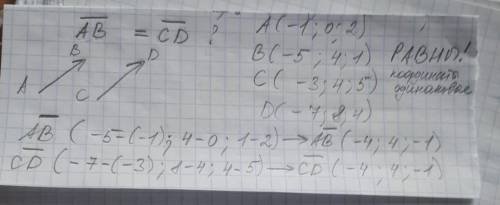 AB = CD ?
A(-1; 0; 2)
B(-5; 4; 1) РАВНЫ!
C(-3; 4; 5) координаты
D(-7; 8; 4) одинаковые
B D
A C
AB (-5-(-1); 4-0; 1-2) → AB (-4; 4; -1)
CD (-7-(-3); 8-4; 4-5) → CD (-4; 4; -1)